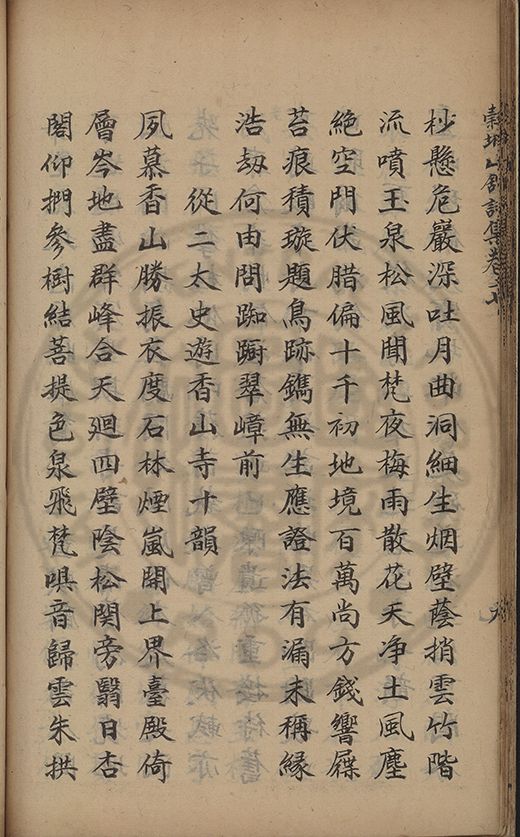 穀城山館詩集卷之十
杪懸危巖深吐月曲洞細生烟壁蔭捎雲竹階
流噴玉泉松風聞梵夜梅雨散花天净土風塵
絶空門伏腊偏十千初地境百萬尚方錢響屧
苔痕積璇題鳥跡鐫無生應證法有漏未稱緣
浩刼何由問踟蹰翠嶂前
從二太史遊香山寺十韻
夙慕香山勝振衣度石林煙嵐開上界臺殿倚
層岑地盡群峰合天廻四壁陰松関旁翳日杏
閣仰捫參樹結菩提色泉飛梵唄音歸雲朱拱